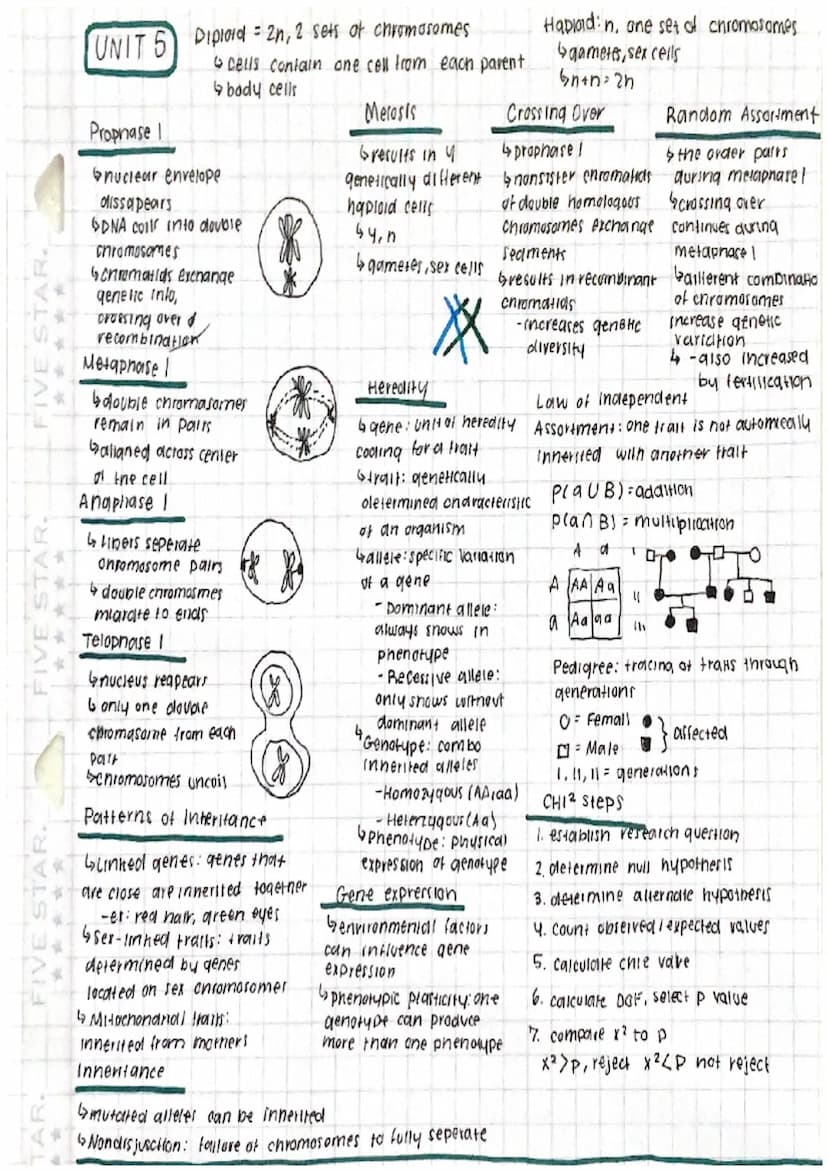 UNIT 5
Diploid = 2n, 2 sets of chromosomes
↳ cells contain one cell from each parent
↳ body cells
Haploid: n, one set of chromosomes
↳ gametes, sex cells
↳ n+n=2n
Prophase 1
↳ nuclear envelope
dissapears
↳ DNA coils into double
chromosomes
↳ chromatids exchange
genetic info,
crossing over &
recombination
Metaphase 1
↳ double chromosomes
remain in pairs
↳ aligned across center
of the cell
Anaphase 1
↳ fibers seperate
chromosome pairs
↳ double chromosmes
migrate to ends
Telophase 1
↳ nucleus reapears
↳ only one double
chromosome from each
pair
↳ chromosomes uncoil
Patterns of Inheritance
↳ Linked genes: genes that
are close are inherited together
- ex: red hair, green eyes
↳ Sex-linked traits: traits
determined by genes
located on sex chromosomes
↳ Mitochondrial traits:
inherited from mothers
Inheritance
↳ mutated alleles can be inherited
↳ Nondisjuction: failure of chromosomes to fully seperate
Meiosis
↳ results in 4
genetically different
haploid cells
↳ 4, n
↳ gametes, sex cells
Heredity
↳ gene: unit of heredity
coding for a trait
↳ trait: genetically
determined characteristic
of an organism
↳ allele: specific variation
of a gene
- Dominant allele:
always shows in
phenotype
- Recessive allele:
only shows without
dominant allele
↳ Genotype: combo
inherited alleles
- Homozygous (AA, aa)
- Heterzygous (Aa)
↳ Phenotype: physical
expression of genotype
Gene expression
↳ environmental factors
can influence gene
expression
↳ phenotypic plasticity: one
genotype can produce
more than one phenotype
Crossing Over
↳ prophase 1
↳ nonsister chromatids
of double homologous
chromosomes exchange
segments
↳ results in recombinant
chromatids
- increases genetic
diversity
Random Assortment
↳ the order pairs
during metaphase 1
↳ crossing over
continues during
metaphase 1
↳ different combinatio
of chromosomes
increase genetic
variation
↳ - also increased
by fertilication
Law of Independent
Assortment: one trait is not automically
inherited with another trait
P(a ∪ B) = addition
P(a ∩ B) = multiplication
A a
A AA Aa
a Aa aa
I
II
III
Pedigree: tracing of traits through
generations
O = Femall
□ = Male
} affected
I, II, II = generations
CHI² steps
1. establish research question
2. determine null hypothesis
3. determine alternate hypothesis
4. count observed / expected values
5. calculate chi²
6. calculate DOF, select p value
7. compare x² to p
x² > p, reject x² < p not reject
FIVE STAR.
FIVE STAR.
FIVE STAR.
TAR.